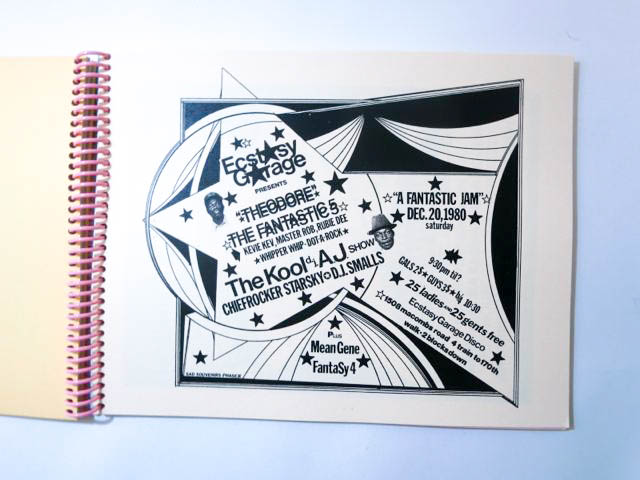 Ecstasy
Garage
PRESENTS
"THEODORE"
THE FANTASTIC 5
KEVIE KEV, MASTER ROB, RUBIE DEE
WHIPPER WHIP· DOT·A·ROCK
The Kool d.j. A.J. SHOW
CHIEFROCKER STARSKY D.J. SMALLS
"A FANTASTIC JAM"
DEC. 20, 1980
saturday
9:30pm til?
GALS 2$ GUYS 3$ by 10:30
25 ladies 25 gents free
Ecstasy Garage Disco
1508 macombs road 4 train to 170th
walk·2 blocks down
PLUS
Mean Gene
FantaSy 4
SAD SOUVENIRS PHASE II